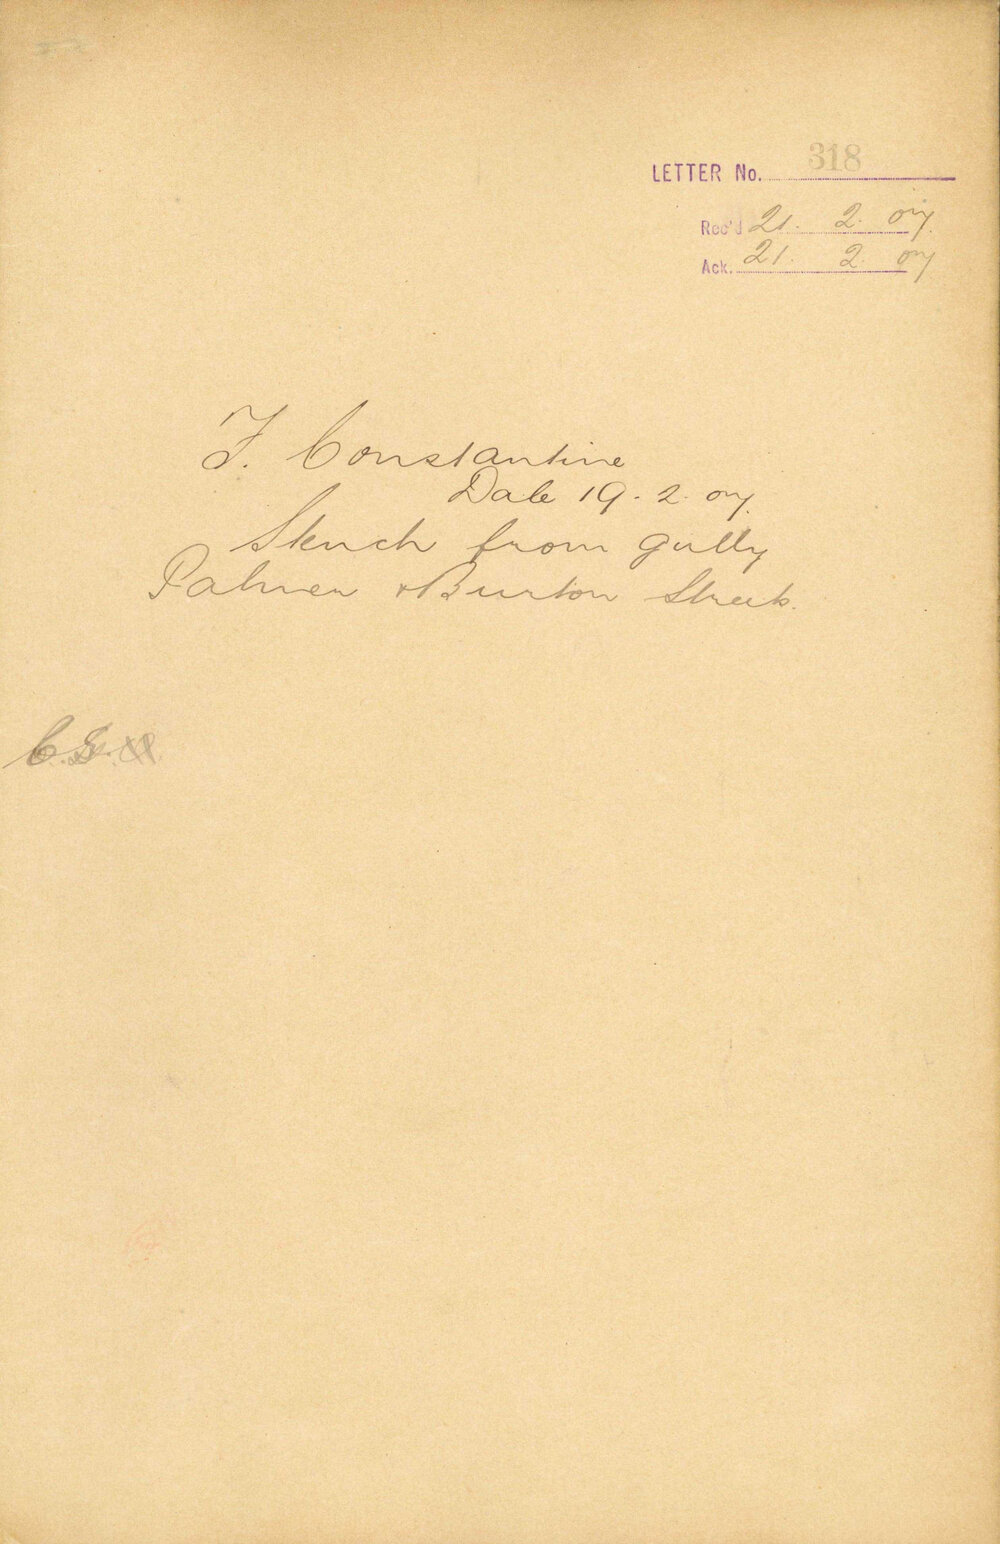 LETTER No. 318
Rec'd 21. 2. 07.
Ack. 21. 2. 07
F. Constantine
Date 19. 2. 07.
Stench from gully
Palmer & Burton Streets.
C.S.